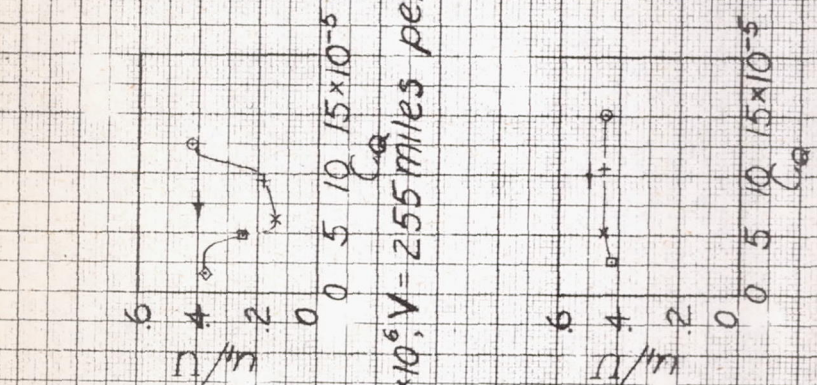 .6
.4
.2
0
0 5 10 15×10⁻⁵
C_Q
×10⁶; V = 255 miles pe
.6
.4
.2
0
0 5 10 15×10⁻⁵
C_Q